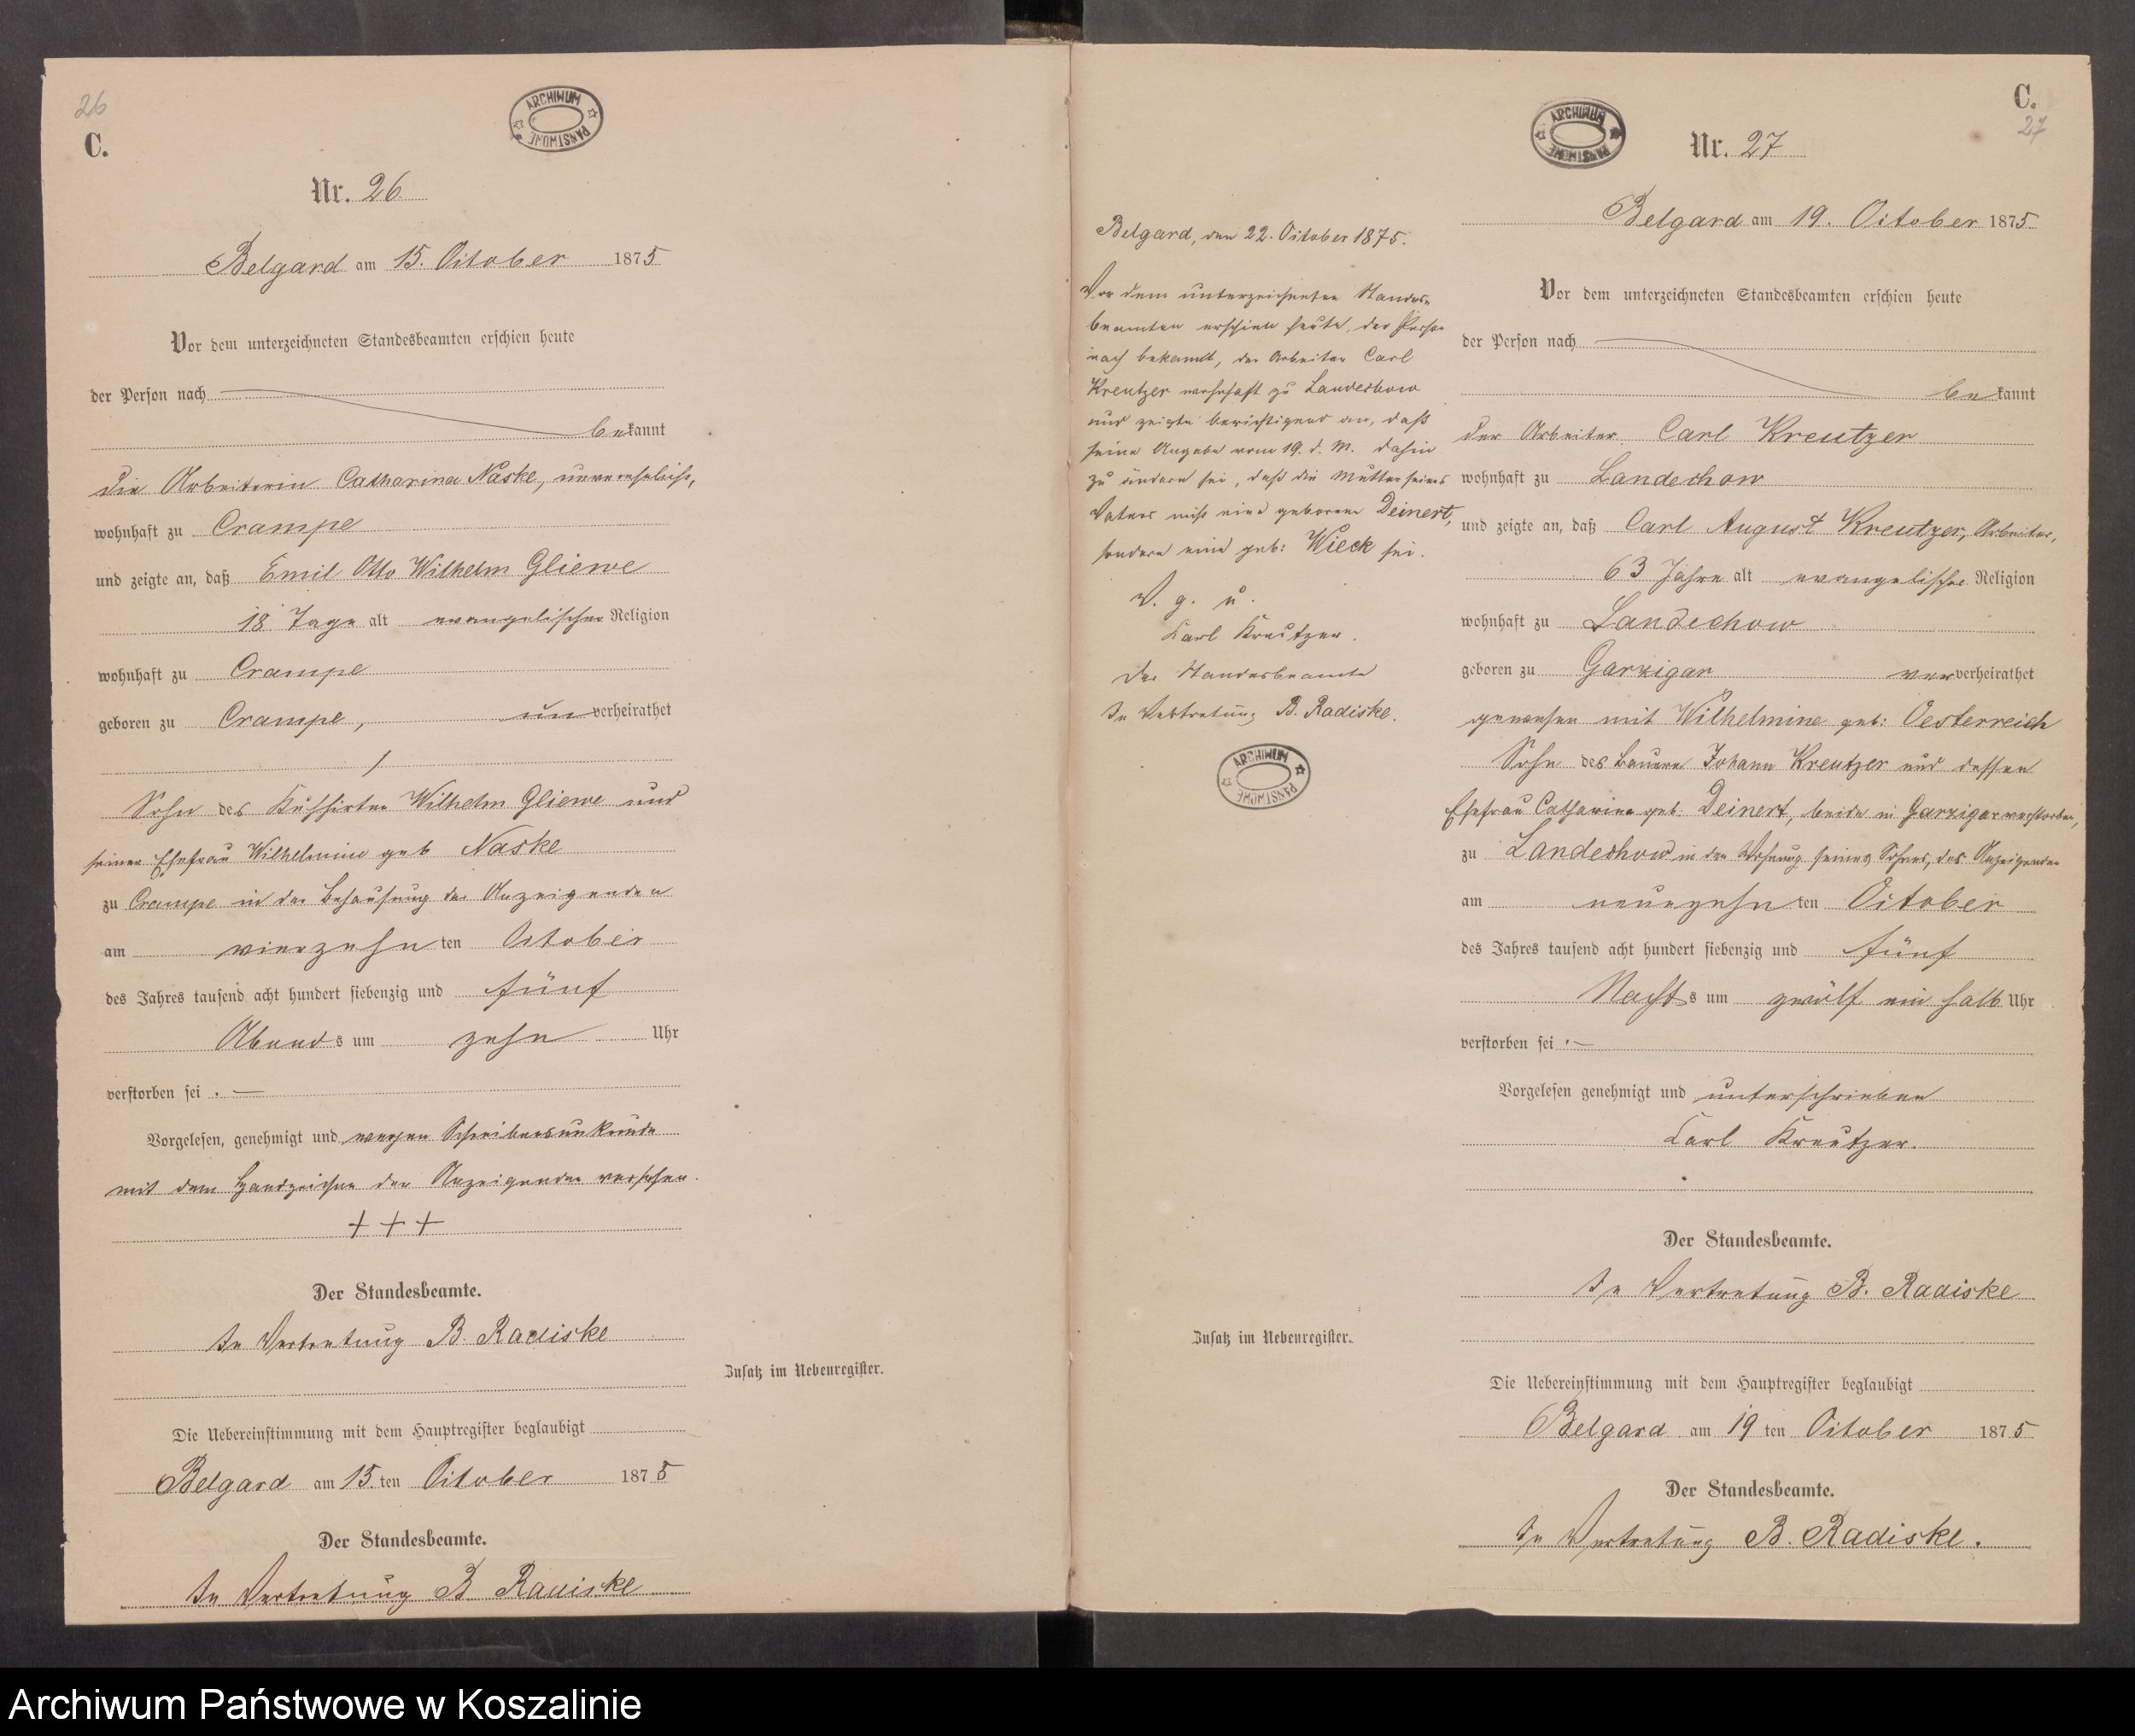 26
C.
ARCHIWUM PAŃSTWOWE
Nr. 26.
Belgard am 15. October 1875
Vor dem unterzeichneten Standesbeamten erschien heute
der Person nach
bekannt
die Arbeiterin Catharina Naske, unverehelicht,
wohnhaft zu Crampe
und zeigte an, daß Emil Otto Wilhelm Gliewe
18 Tage alt evangelischer Religion
wohnhaft zu Crampe
geboren zu Crampe, unverheirathet
/
Sohn des Kuhhirten Wilhelm Gliewe und
seiner Ehefrau Wilhelmine geb Naske
zu Crampe in der Behausung der Anzeigenden
am vierzehnten October
des Jahres tausend acht hundert siebenzig und fünf
Abends um zehn Uhr
verstorben sei . —
Vorgelesen, genehmigt und wegen Schreibensunkunde
mit dem Handzeichen der Anzeigenden versehen.
+ + +
Der Standesbeamte.
In Vertretung B. Radiske
Zusatz im Nebenregister.
Die Uebereinstimmung mit dem Hauptregister beglaubigt
Belgard am 15.ten October 1875
Der Standesbeamte.
In Vertretung B Radiske
C.
27
ARCHIWUM PAŃSTWOWE
Nr. 27
Belgard am 19. October 1875
Vor dem unterzeichneten Standesbeamten erschien heute
der Person nach
bekannt
der Arbeiter Carl Kreutzer
wohnhaft zu Landechow
und zeigte an, daß Carl August Kreutzer, Arbeiter,
63 Jahre alt evangelischer Religion
wohnhaft zu Landechow
geboren zu Garzigar ververheirathet
gewesen mit Wilhelmine geb: Oesterreich
Sohn des Bauern Johann Kreutzer und dessen
Ehefrau Catharine geb. Deinert, beide in Garzigar verstorben,
zu Landechow in der Wohnung seines Sohnes, des Anzeigenden
am neunzehnten October
des Jahres tausend acht hundert siebenzig und fünf
Nachts um zwölf ein halb Uhr
verstorben sei . —
Vorgelesen genehmigt und unterschrieben
Carl Kreutzer.
Der Standesbeamte.
In Vertretung B. Radiske
Die Uebereinstimmung mit dem Hauptregister beglaubigt
Belgard am 19 ten October 1875
Der Standesbeamte.
In Vertretung B. Radiske.
Belgard, den 22. October 1875.
Vor dem unterzeichneten Standes-
beamten erschien heute, der Person
nach bekannt, der Arbeiter Carl
Kreutzer wohnhaft zu Landechow
und zeigte berichtigend an, daß
seine Angabe vom 19. d. M. dahin
zu ändern sei, daß die Mutter seines
Vaters nicht eine geborene Deinert,
sondern eine geb: Wieck sei.
V. g. u.
Carl Kreutzer.
Der Standesbeamte
In Vertretung B. Radiske.
ARCHIWUM PAŃSTWOWE
Zusatz im Nebenregister.
Archiwum Państwowe w Koszalinie